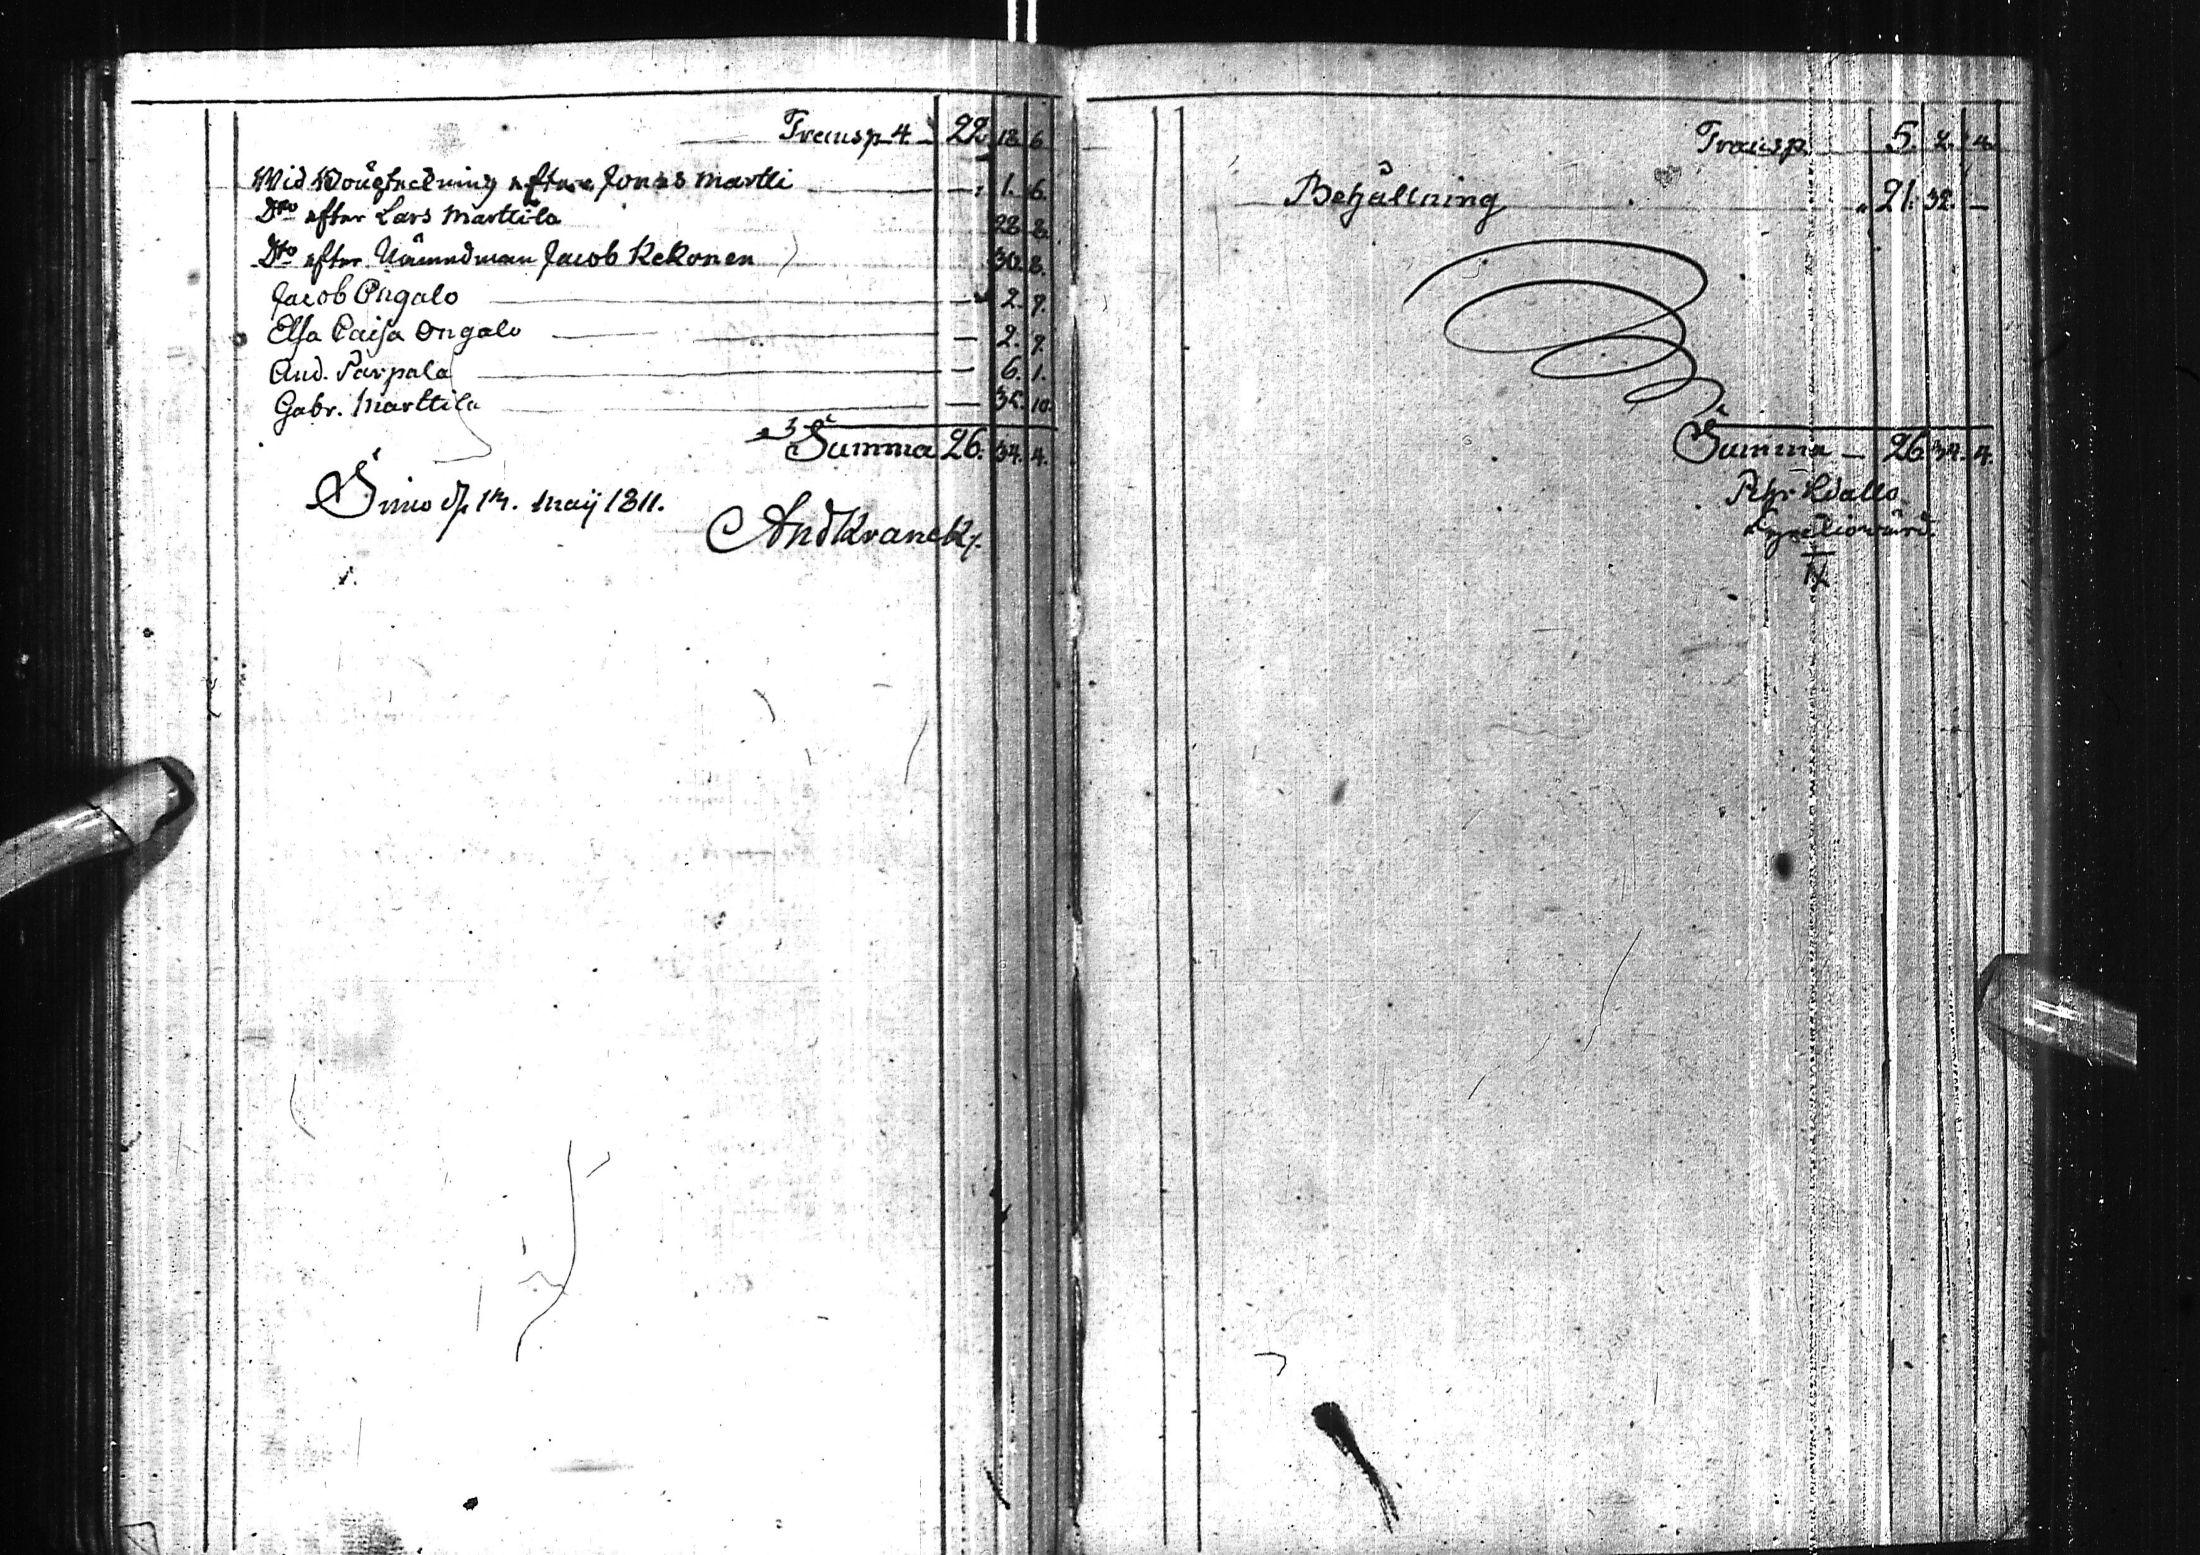 Transp. 4. 22. 18. 6.
Wid Boupteckning efter Jonas Martti — 1. 6.
Dto efter Lars Marttila 28. 8.
Dto efter Nämndman Jacob Kekonen 30. 8.
Jacob Ongalo — 2. 7.
Elsa Caisa Ongalo — 2. 7.
And. Parpala — 6. 1.
Gabr. Marttila — 32. 10.
Summa 26. 34. 4.
Simo d. 14. Maij 1811.
And Kranck
Transp. 5. 2. 4.
Behållning 21. 32. —
Summa — 26. 34. 4.
Pehr Wallo
Kyrckiowärd.